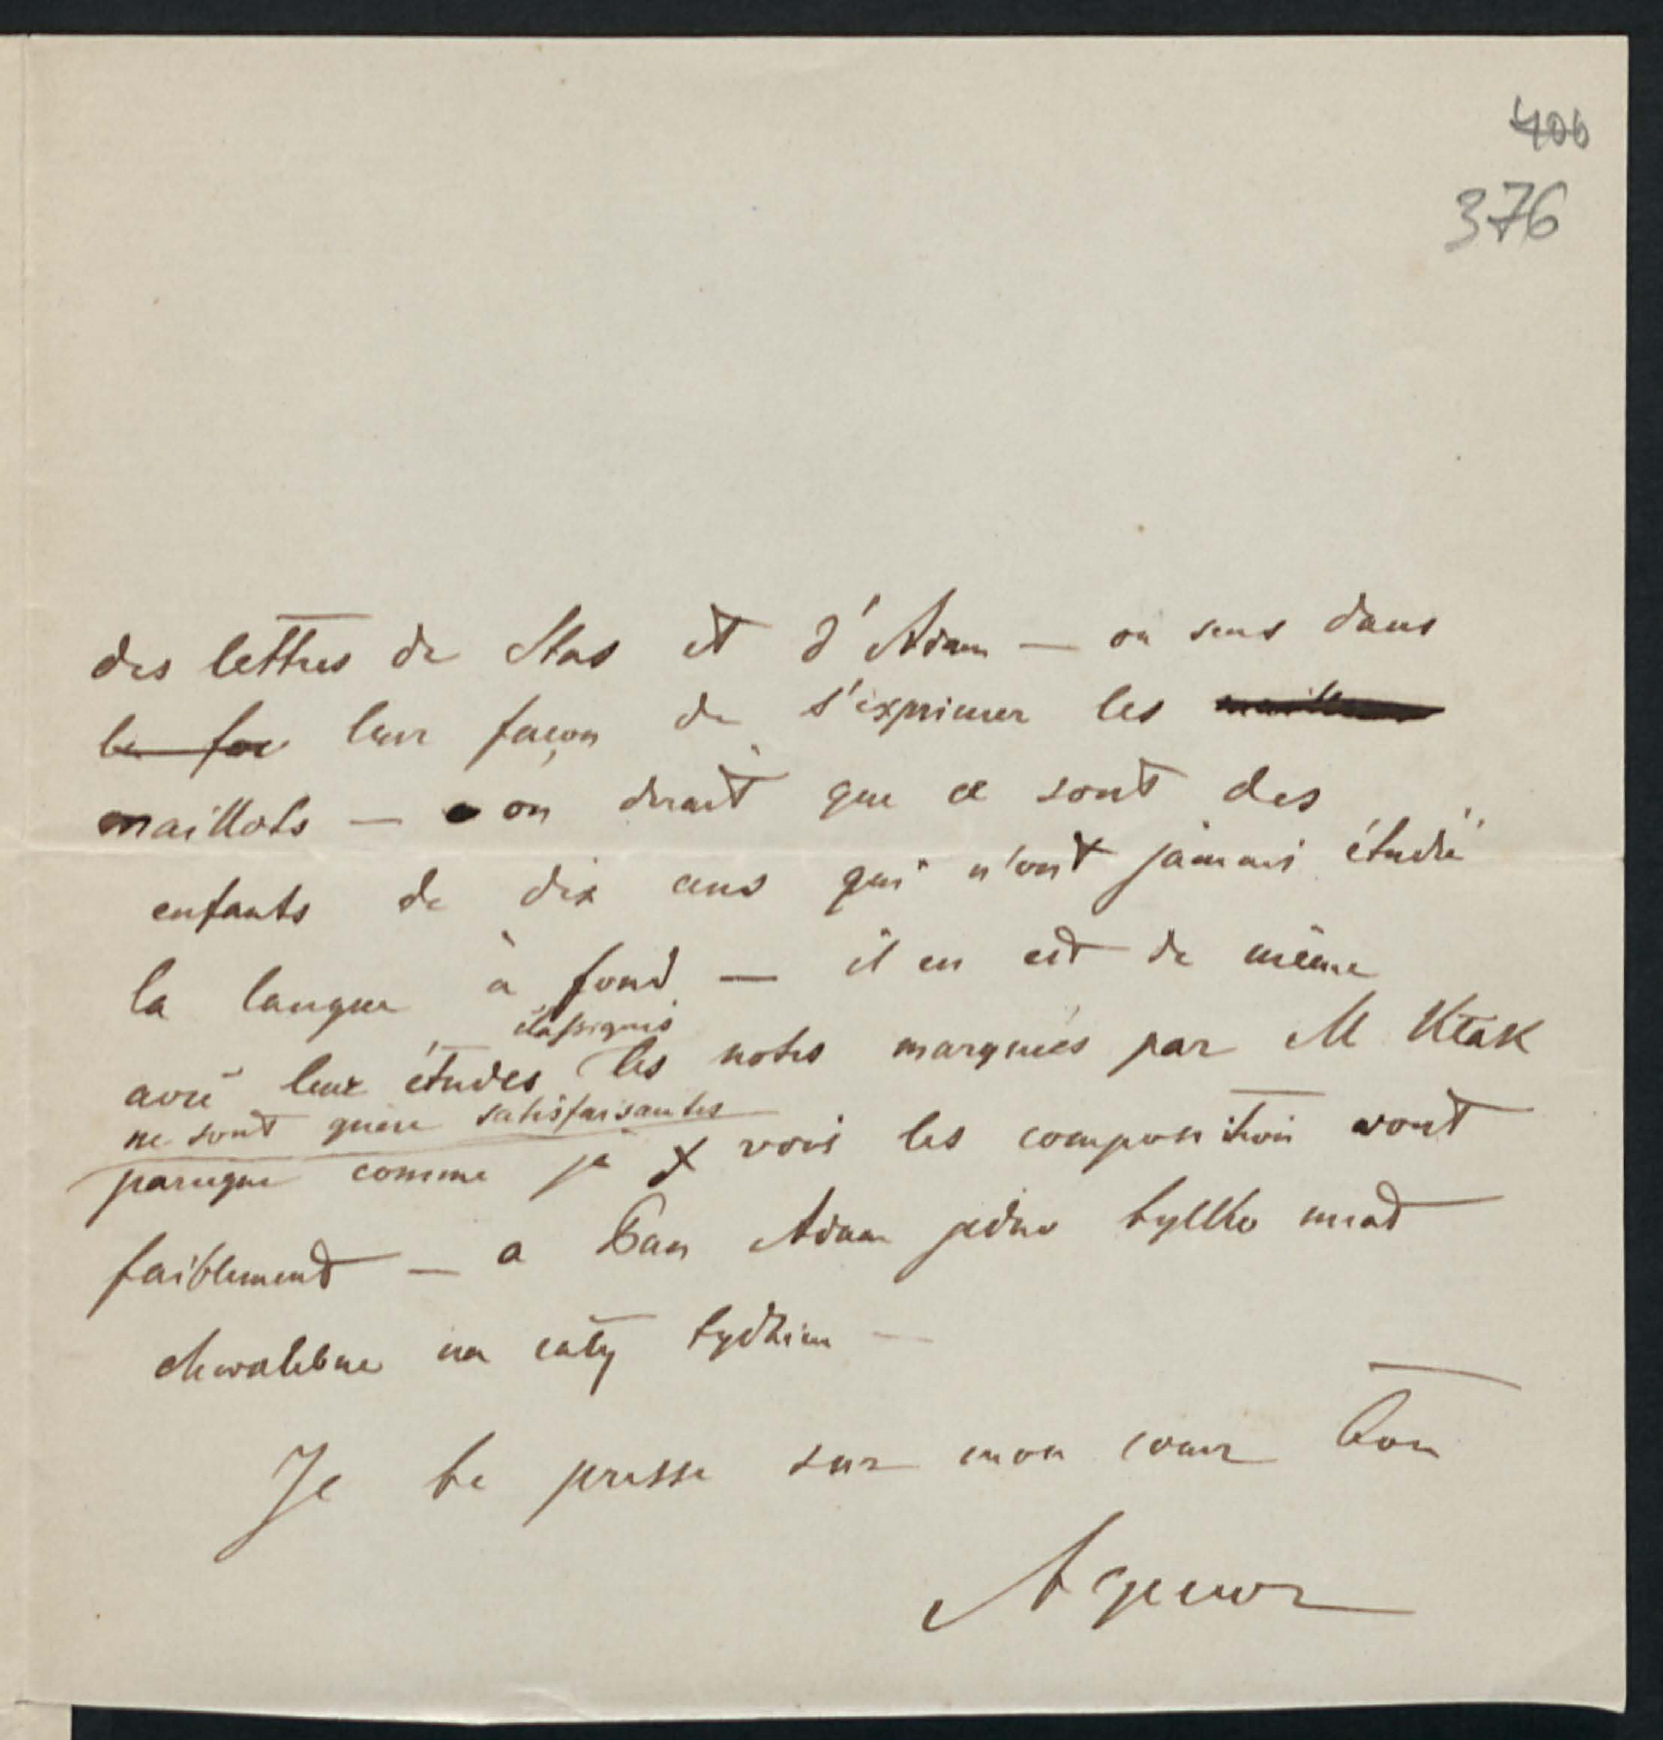 400
376
des lettres de Stas et d'Adam — on sens dans
le fac leur façon de s'exprimer les
maillots — on dirait que ce sont des
enfants de dix ans qui n'ont jamais étudié
la langue à fond — il en est de même
classiques
avec leur études les notes marquées par M Ktak
ne sont guère satisfaisantes
parceque comme je vois les composition vont
faiblement — a Pan Adam jedno tylko miał
chwalebne na cały tydzien —
Je te presse sur mon cœur Ton
Agenor